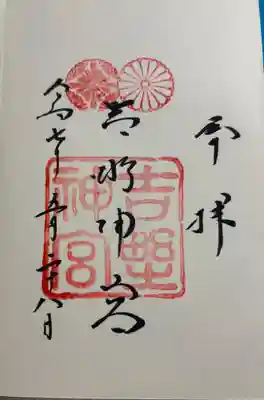 奉拝
吉野神宮
吉野神宮
令和七年五月二十八日